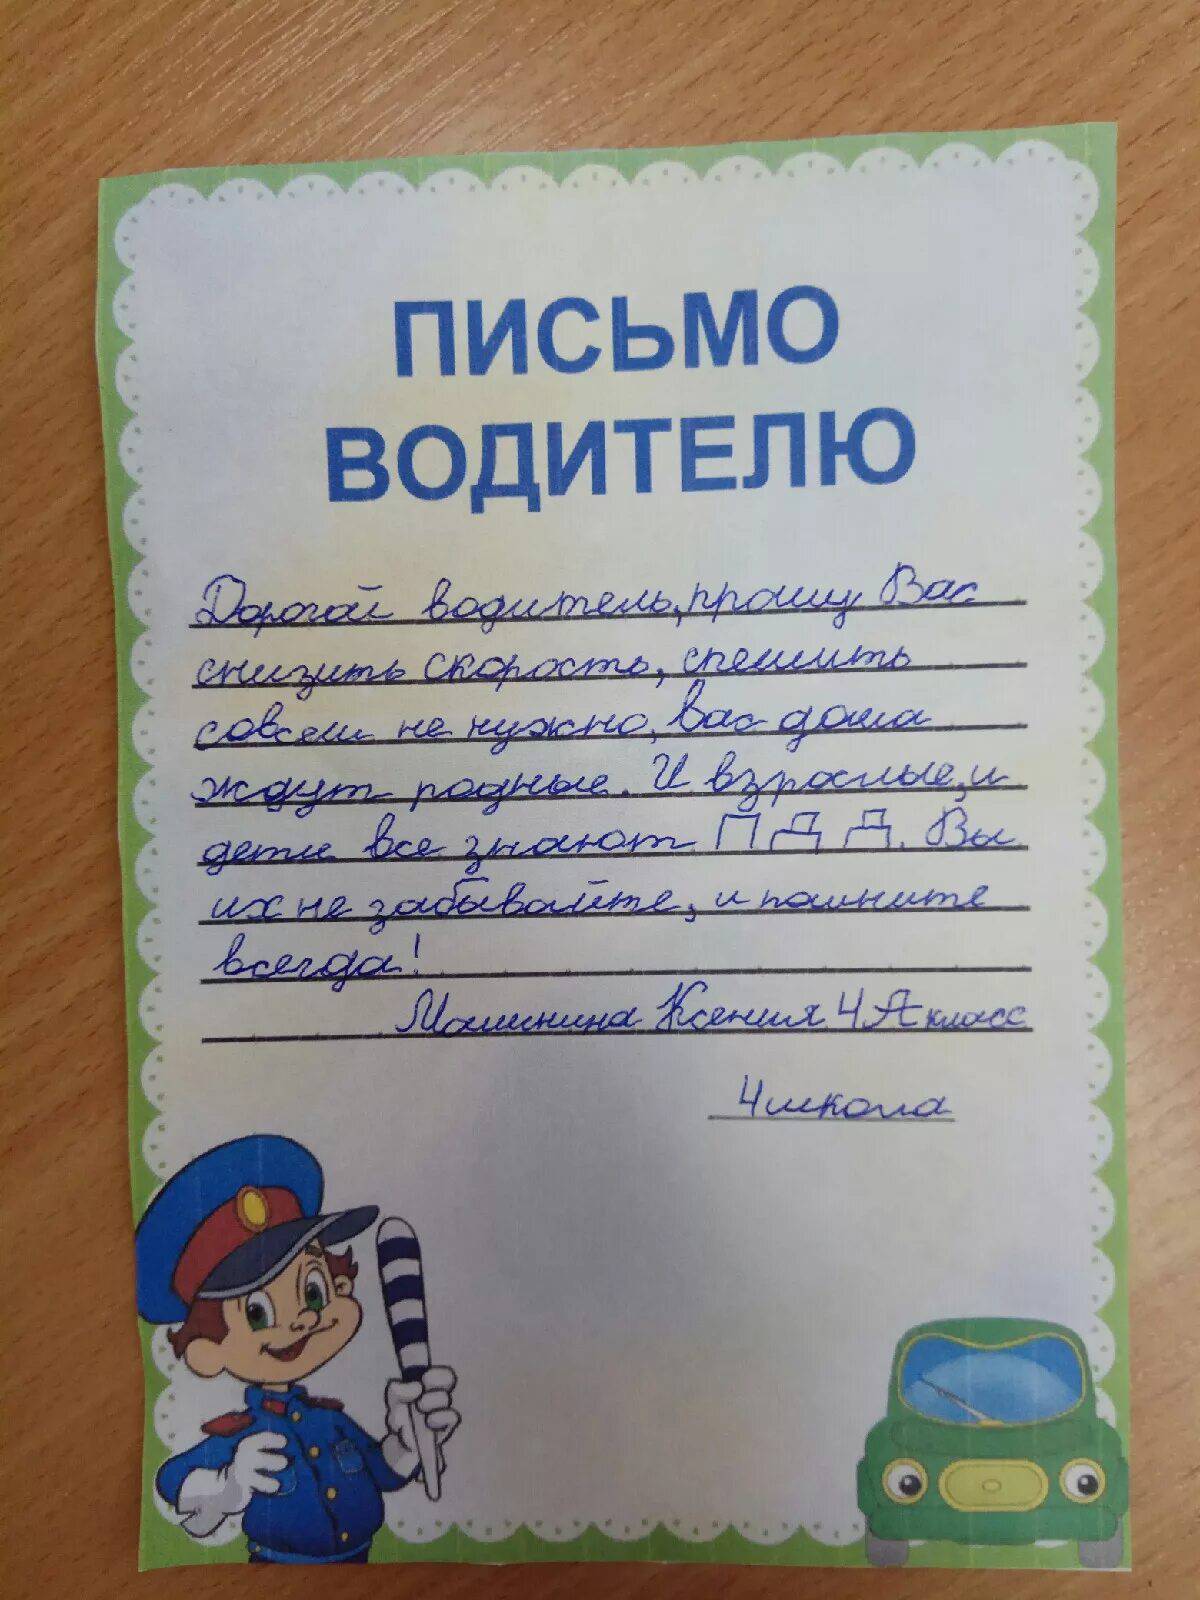 ПИСЬМО
ВОДИТЕЛЮ
Дорогой водитель, прошу Вас
снизить скорость, спешить
совсем не нужно, вас дома
ждут родные. И взрослые, и
дети все знают ПДД. Вы
их не забывайте, и помните
всегда!
Машинина Ксения 4А класс
4 школа